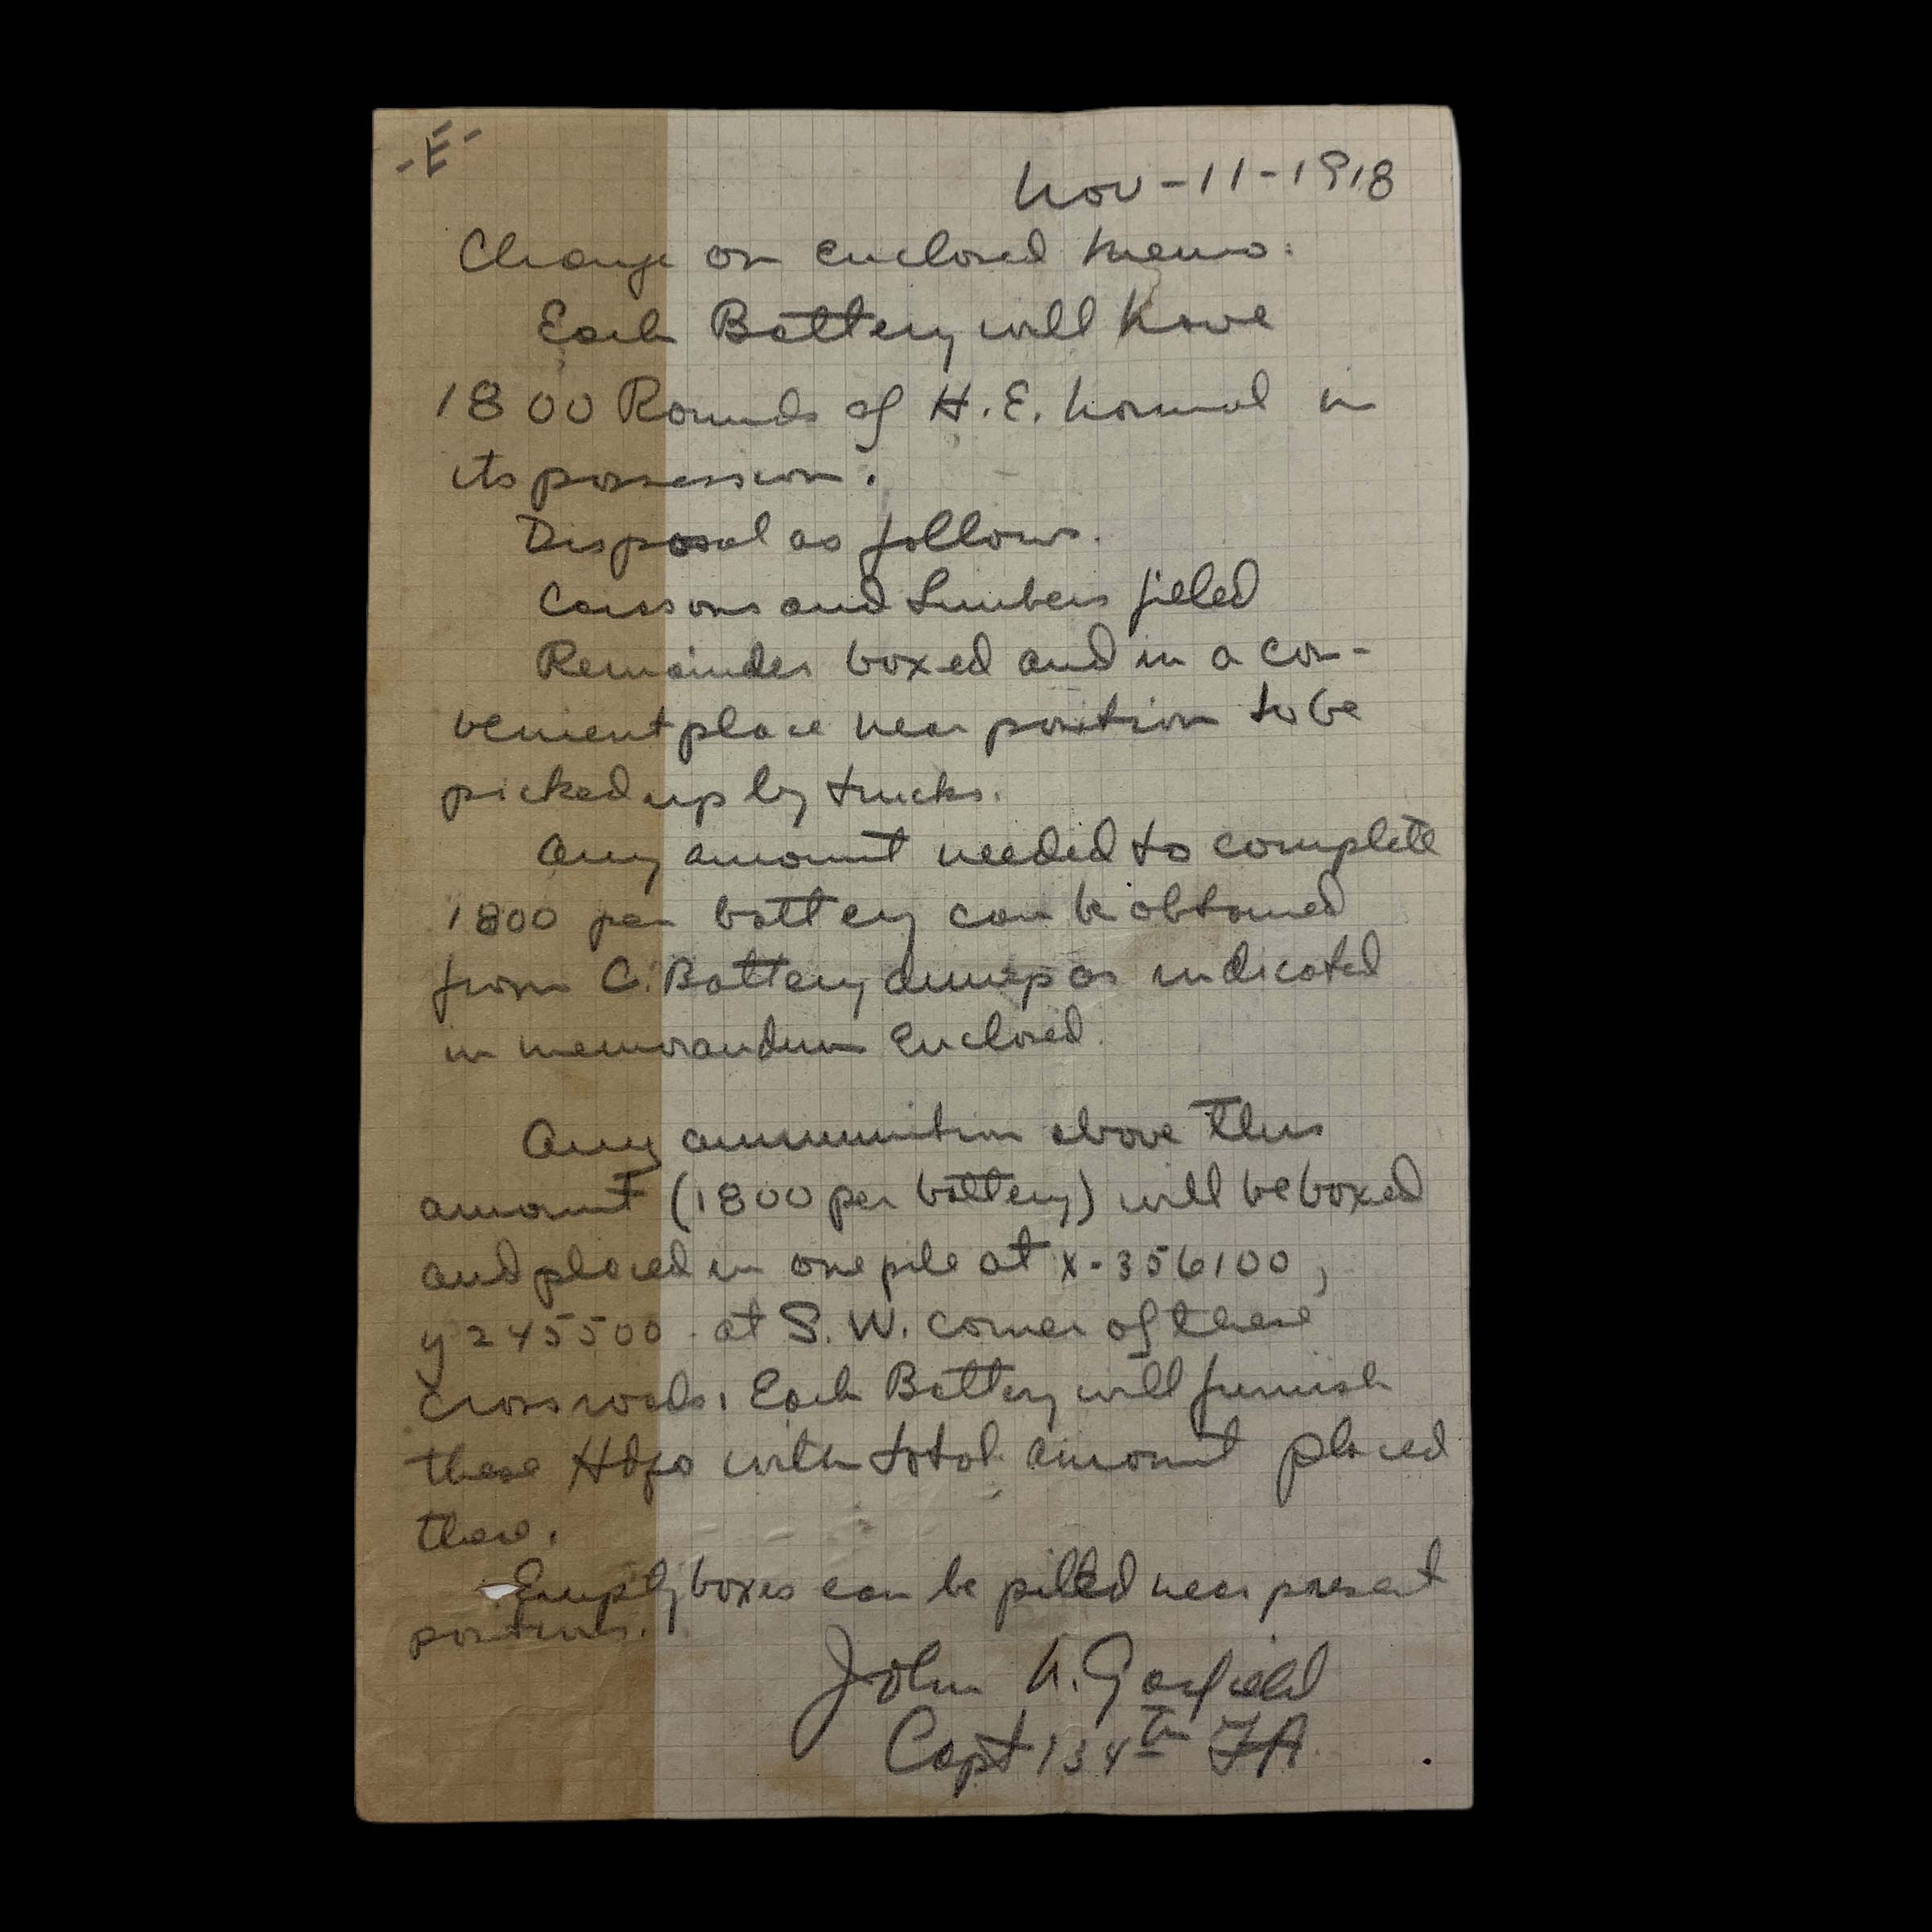 -E-
Nov-11-1918
Change on enclosed memo:
Each Battery will have
1800 Rounds of H.E. Normal in
its possession.
Disposal as follows.
Caissons and Limbers filled
Remainder boxed and in a con-
venient place near position to be
picked up by trucks.
Any amount needed to complete
1800 per battery can be obtained
from C. Battery dump as indicated
in memorandum enclosed.
Any ammunition above this
amount (1800 per battery) will be boxed
and placed in one pile at x-356100,
y 245500 - at S.W. corner of these
crossroads. Each Battery will furnish
these Hdqs with total amount placed
there.
Empty boxes can be piled near present
positions.
John N. Garfield
Capt 134th FA.